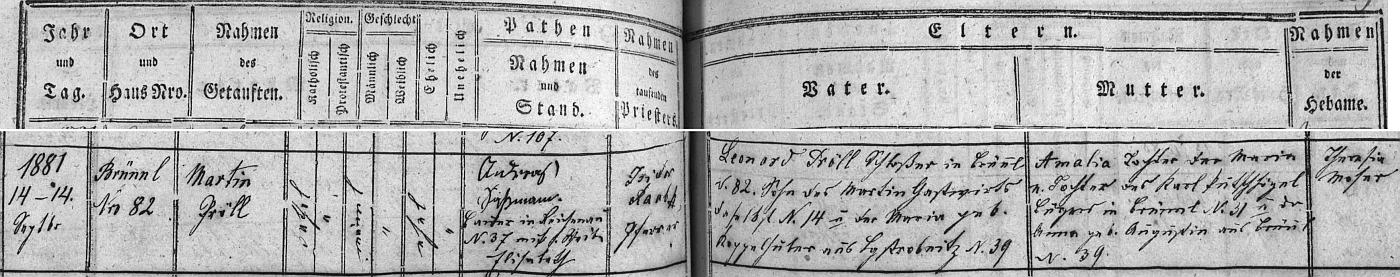 Jahr
und
Tag.
Ort
und
Haus Nro.
Nahmen
des
Getauften.
Religion.
Katholisch
Protestantisch
Geschlecht
Männlich
Weiblich
Ehelich
Unehelich
Pathen
Nahmen
und
Stand.
Nahmen
des
taufenden
Priesters
Eltern.
Vater.
Mutter.
Nahmen
der
Hebame.
N. 107.
1881
14-14.
Septbr
Brünnl
Nro 82
Martin
Pröll
Andreas
Bauer in Reichenau
N. 37 mit s.
Elisabeth
Pfarrer
Leonard Pröll Schloßer in Brünnl
N. 82. Sohn des Martin Gastwirts
N. 14 u der Maria geb.
Koppelhuber aus N. 39
Amalia Tochter der Maria
u. Tochter des Karl
in Brünnl N. 31 u der
Anna geb. Augustin aus Brünnl
N. 39.
Theresia
Moser